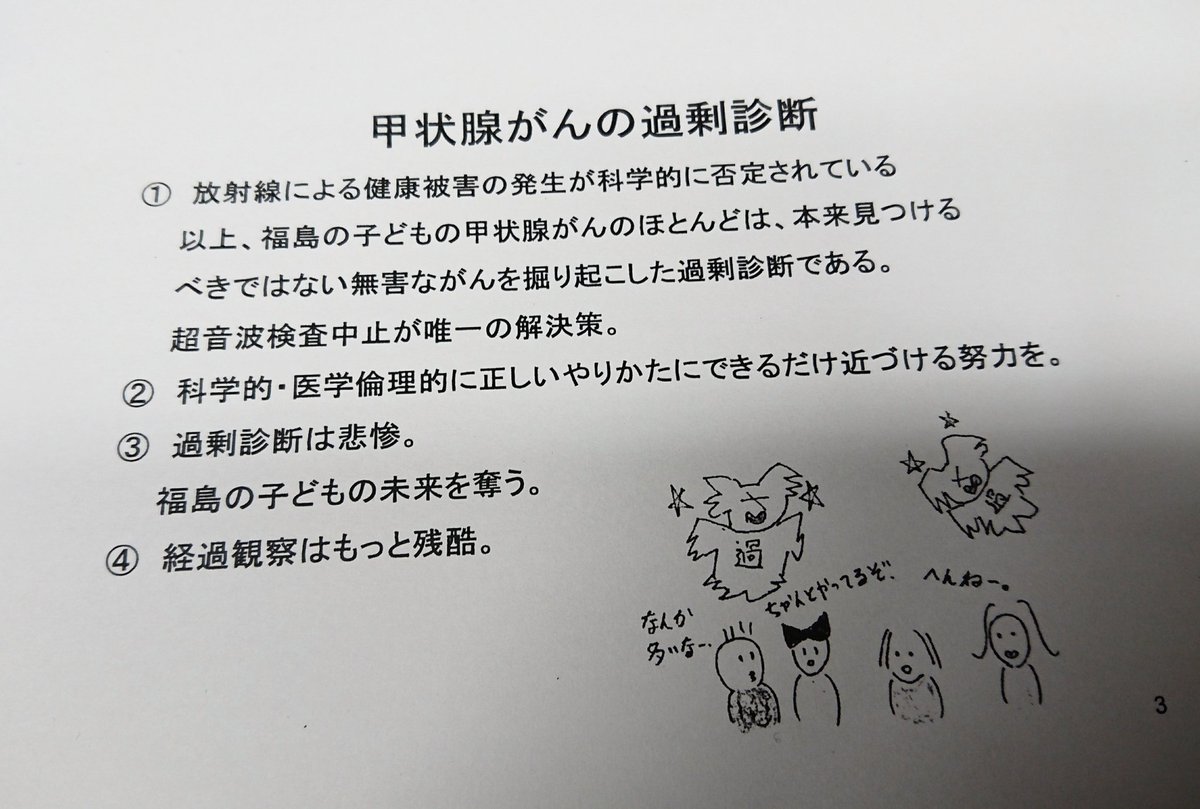 甲状腺がんの過剰診断
① 放射線による健康被害の発生が科学的に否定されている
以上、福島の子どもの甲状腺がんのほとんどは、本来見つける
べきではない無害ながんを掘り起こした過剰診断である。
超音波検査中止が唯一の解決策。
② 科学的・医学倫理的に正しいやりかたにできるだけ近づける努力を。
③ 過剰診断は悲惨。
福島の子どもの未来を奪う。
④ 経過観察はもっと残酷。
過
過
なんか
多いなー、
ちゃんとやってるぞ、
へんねー。
3